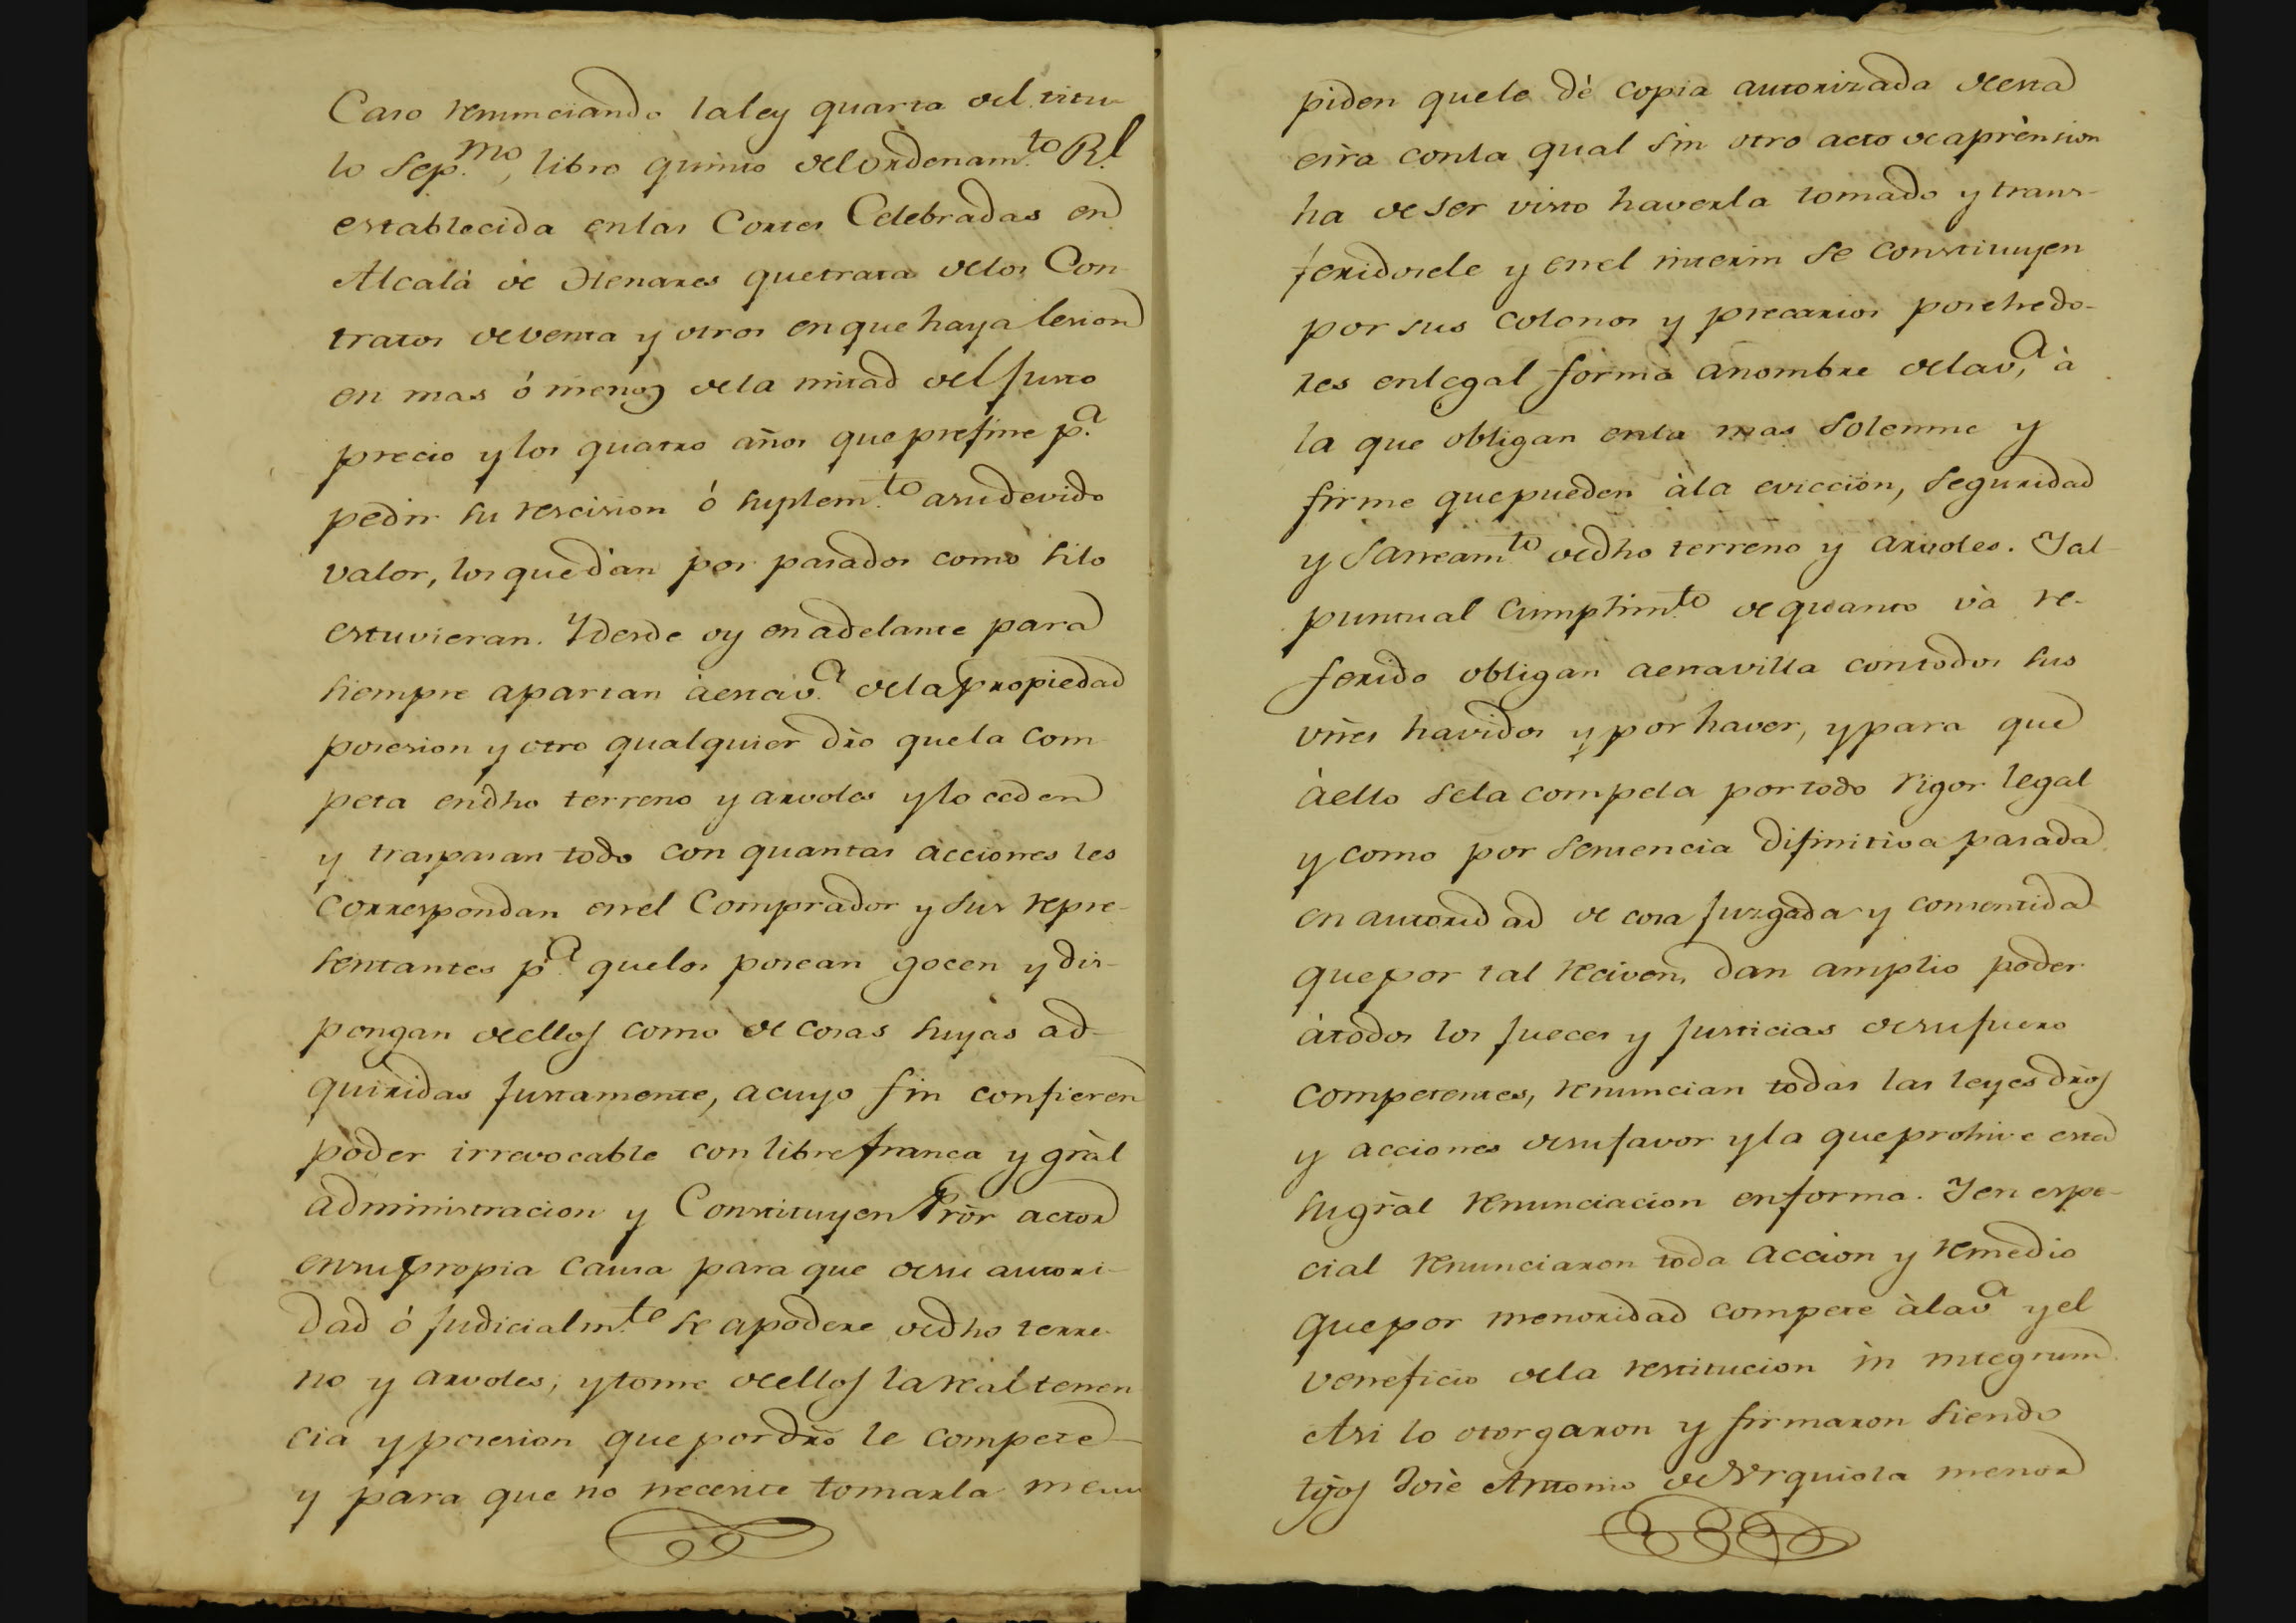 Caso renunciando la ley quarta del titu-
lo Sep.mo, libro quinto del Ordenam.to R.l
establecida en las Cortes Celebradas en
Alcalá de Henares que trata de los Con-
tratos de venta y otros en que haya lesion
en mas ó menos de la mitad del justo
precio y los quatro años que prefine p.a
pedir su rescision ó suplem.to a su devido
valor, los que dàn por pasados como si lo
estuvieran. Y desde oy en adelante para
siempre apartan à esta v.a de la propiedad
posesion y otro qualquier dro que la com-
peta en dho terreno y arvoles y lo ceden
y traspasan todo con quantas acciones les
correspondan en el Comprador y sus repre-
sentantes p.a que los posean gocen y dis-
pongan de ellos como de cosas suyas ad-
quiridas justamente, a cuyo fin confieren
poder irrevocable con libre franca y gràl
administracion y Constituyen Pror actor
en su propia causa para que de su autori-
dad ó judicialm.te se apodere de dho terre-
no y arvoles, y tome de ellos la real tenen-
cia y posesion que por dro le compete
y para que no necesite tomarla me
piden que le dè copia autorizada de esta
cira con la qual sin otro acto de aprension
ha de ser visto haverla tomado y trans-
feridosele y en el interin se constituyen
por sus colonos y precarios posehedo-
res en legal forma a nombre de la v.a, à
la que obligan en la mas solemne y
firme que pueden à la eviccion, seguridad
y saneam.to de dho terreno y arvoles. Y al
puntual cumplim.to de quanto và re-
ferido obligan a esta villa con todos sus
vnes havidos y por haver, y para que
à ello se la compela por todo rigor legal
y como por sentencia difinitiva pasada
en autoridad de cosa juzgada y consentida
que por tal reciven, dan amplio poder
à todos los jueces y justicias de su fuero
competentes, renuncian todas las leyes dros
y acciones de su favor y la que prohive esta
su gràl renunciacion en forma. Y en espe-
cial renunciaron toda accion y remedio
que por menoridad compete à la v.a y el
veneficio de la restitucion in integrum
Asi lo otorgaron y firmaron siendo
tgos Josè Antonio de Vrquiola menor